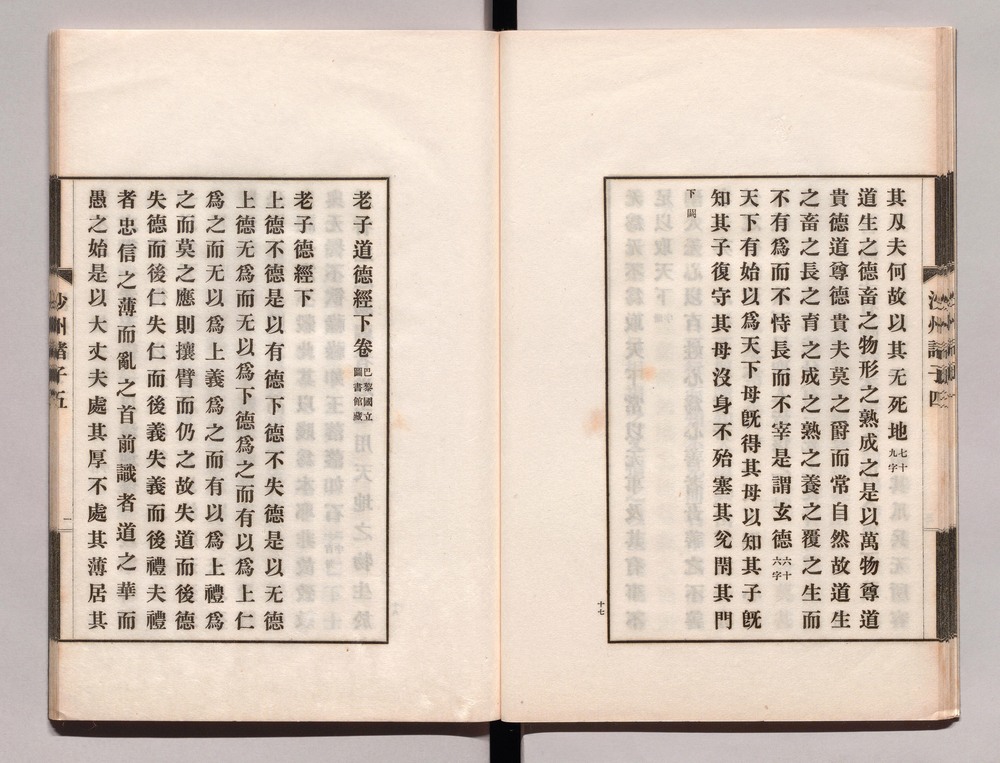 其及夫何故以其无死地七十九字
道生之德畜之物形之熟成之是以萬物尊道
貴德道尊德貴夫莫之爵而常自然故道生
之畜之長之育之成之熟之養之覆之生而
不有爲而不恃長而不宰是謂玄德六十六字
天下有始以爲天下母旣得其母以知其子旣
知其子復守其母沒身不殆塞其兊閇其門
下闕
十七
老子道德經下卷巴黎國立圖書館藏
老子德經下
上德不德是以有德下德不失德是以无德
上德无爲而无以爲下德爲之而有以爲上仁
爲之而无以爲上義爲之而有以爲上禮爲
之而莫之應則攘臂而仍之故失道而後德
失德而後仁失仁而後義失義而後禮夫禮
者忠信之薄而亂之首前識者道之華而
愚之始是以大丈夫處其厚不處其薄居其
沙州諸子五
一